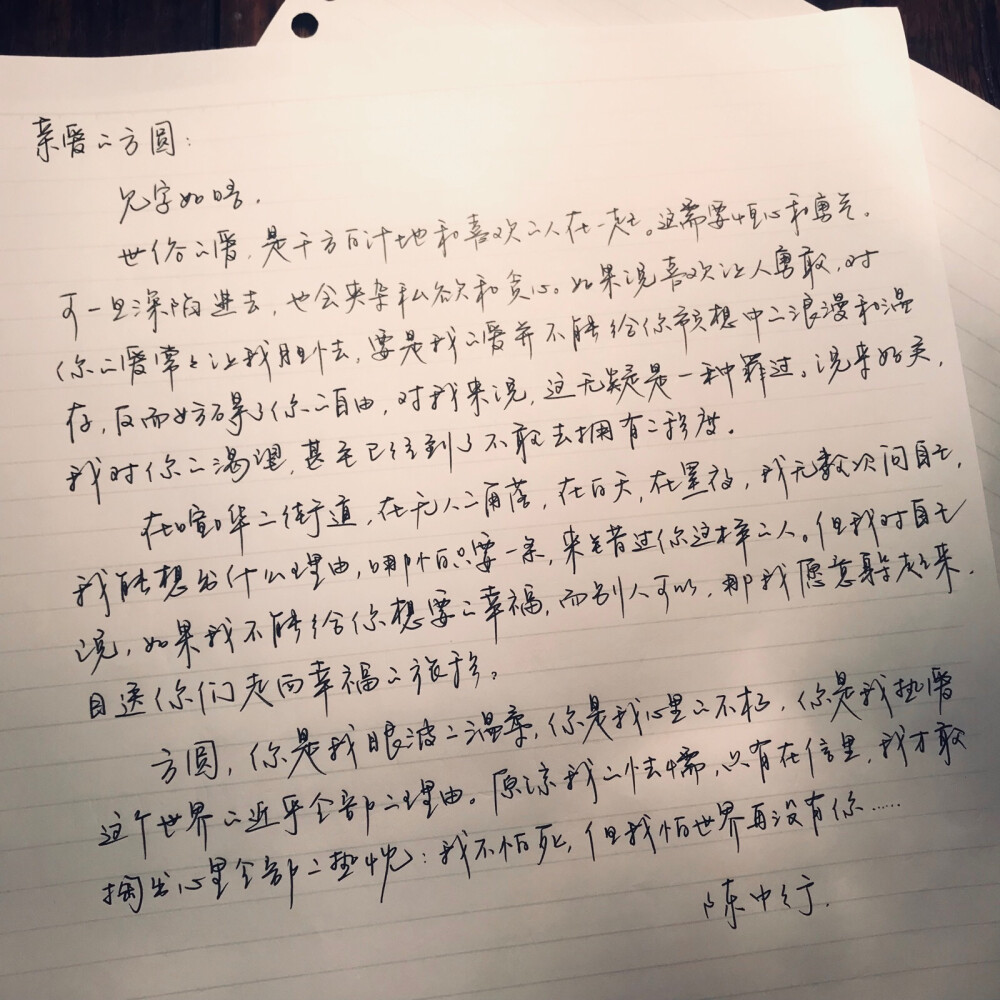 亲爱的方圆：
见字如晤，
世俗的爱，是千方百计地和喜欢的人在一起。这需要恒心和勇气。
可一旦深陷进去，也会夹杂私欲和贪心。如果说喜欢让人勇敢，对
你的爱常常让我胆怯，要是我的爱并不能给你预想中的浪漫和温
存，反而妨碍了你的自由，对我来说，这无疑是一种罪过。说来好笑，
我对你的渴望，甚至已经到了不敢去拥有的程度。
在喧哗的街道，在无人的角落，在白天，在黑夜，我无数次问自己，
我能想出什么理由，哪怕只要一条，来错过你这样的人。但我对自己
说，如果我不能给你想要的幸福，而别人可以，那我愿意躲起来，
目送你们走向幸福的旅程。
方圆，你是我眼波的温柔，你是我心里的不朽，你是我热爱
这个世界的近乎全部的理由。原谅我的怯懦，只有在信里，我才敢
掏出心里全部的热忱：我不怕死，但我怕世界再没有你……
陈中行